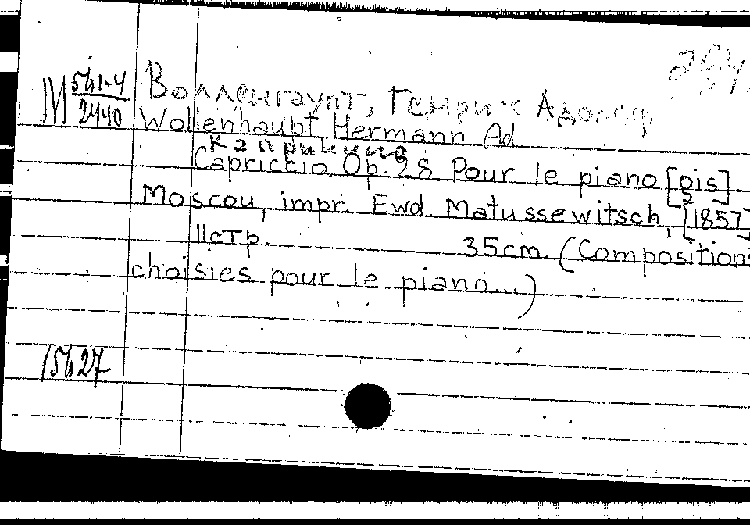 М 561-4/2440
Волленгаупт, Генрих Адольф
Wollenhaupt Hermann Ad
Каприччио
Capriccio Op. 28 Pour le piano [gis]
Moscou, impr. Ewd Matussewitsch, [1857]
11стр. 35cm. (Compositions
choisies pour le piano...)